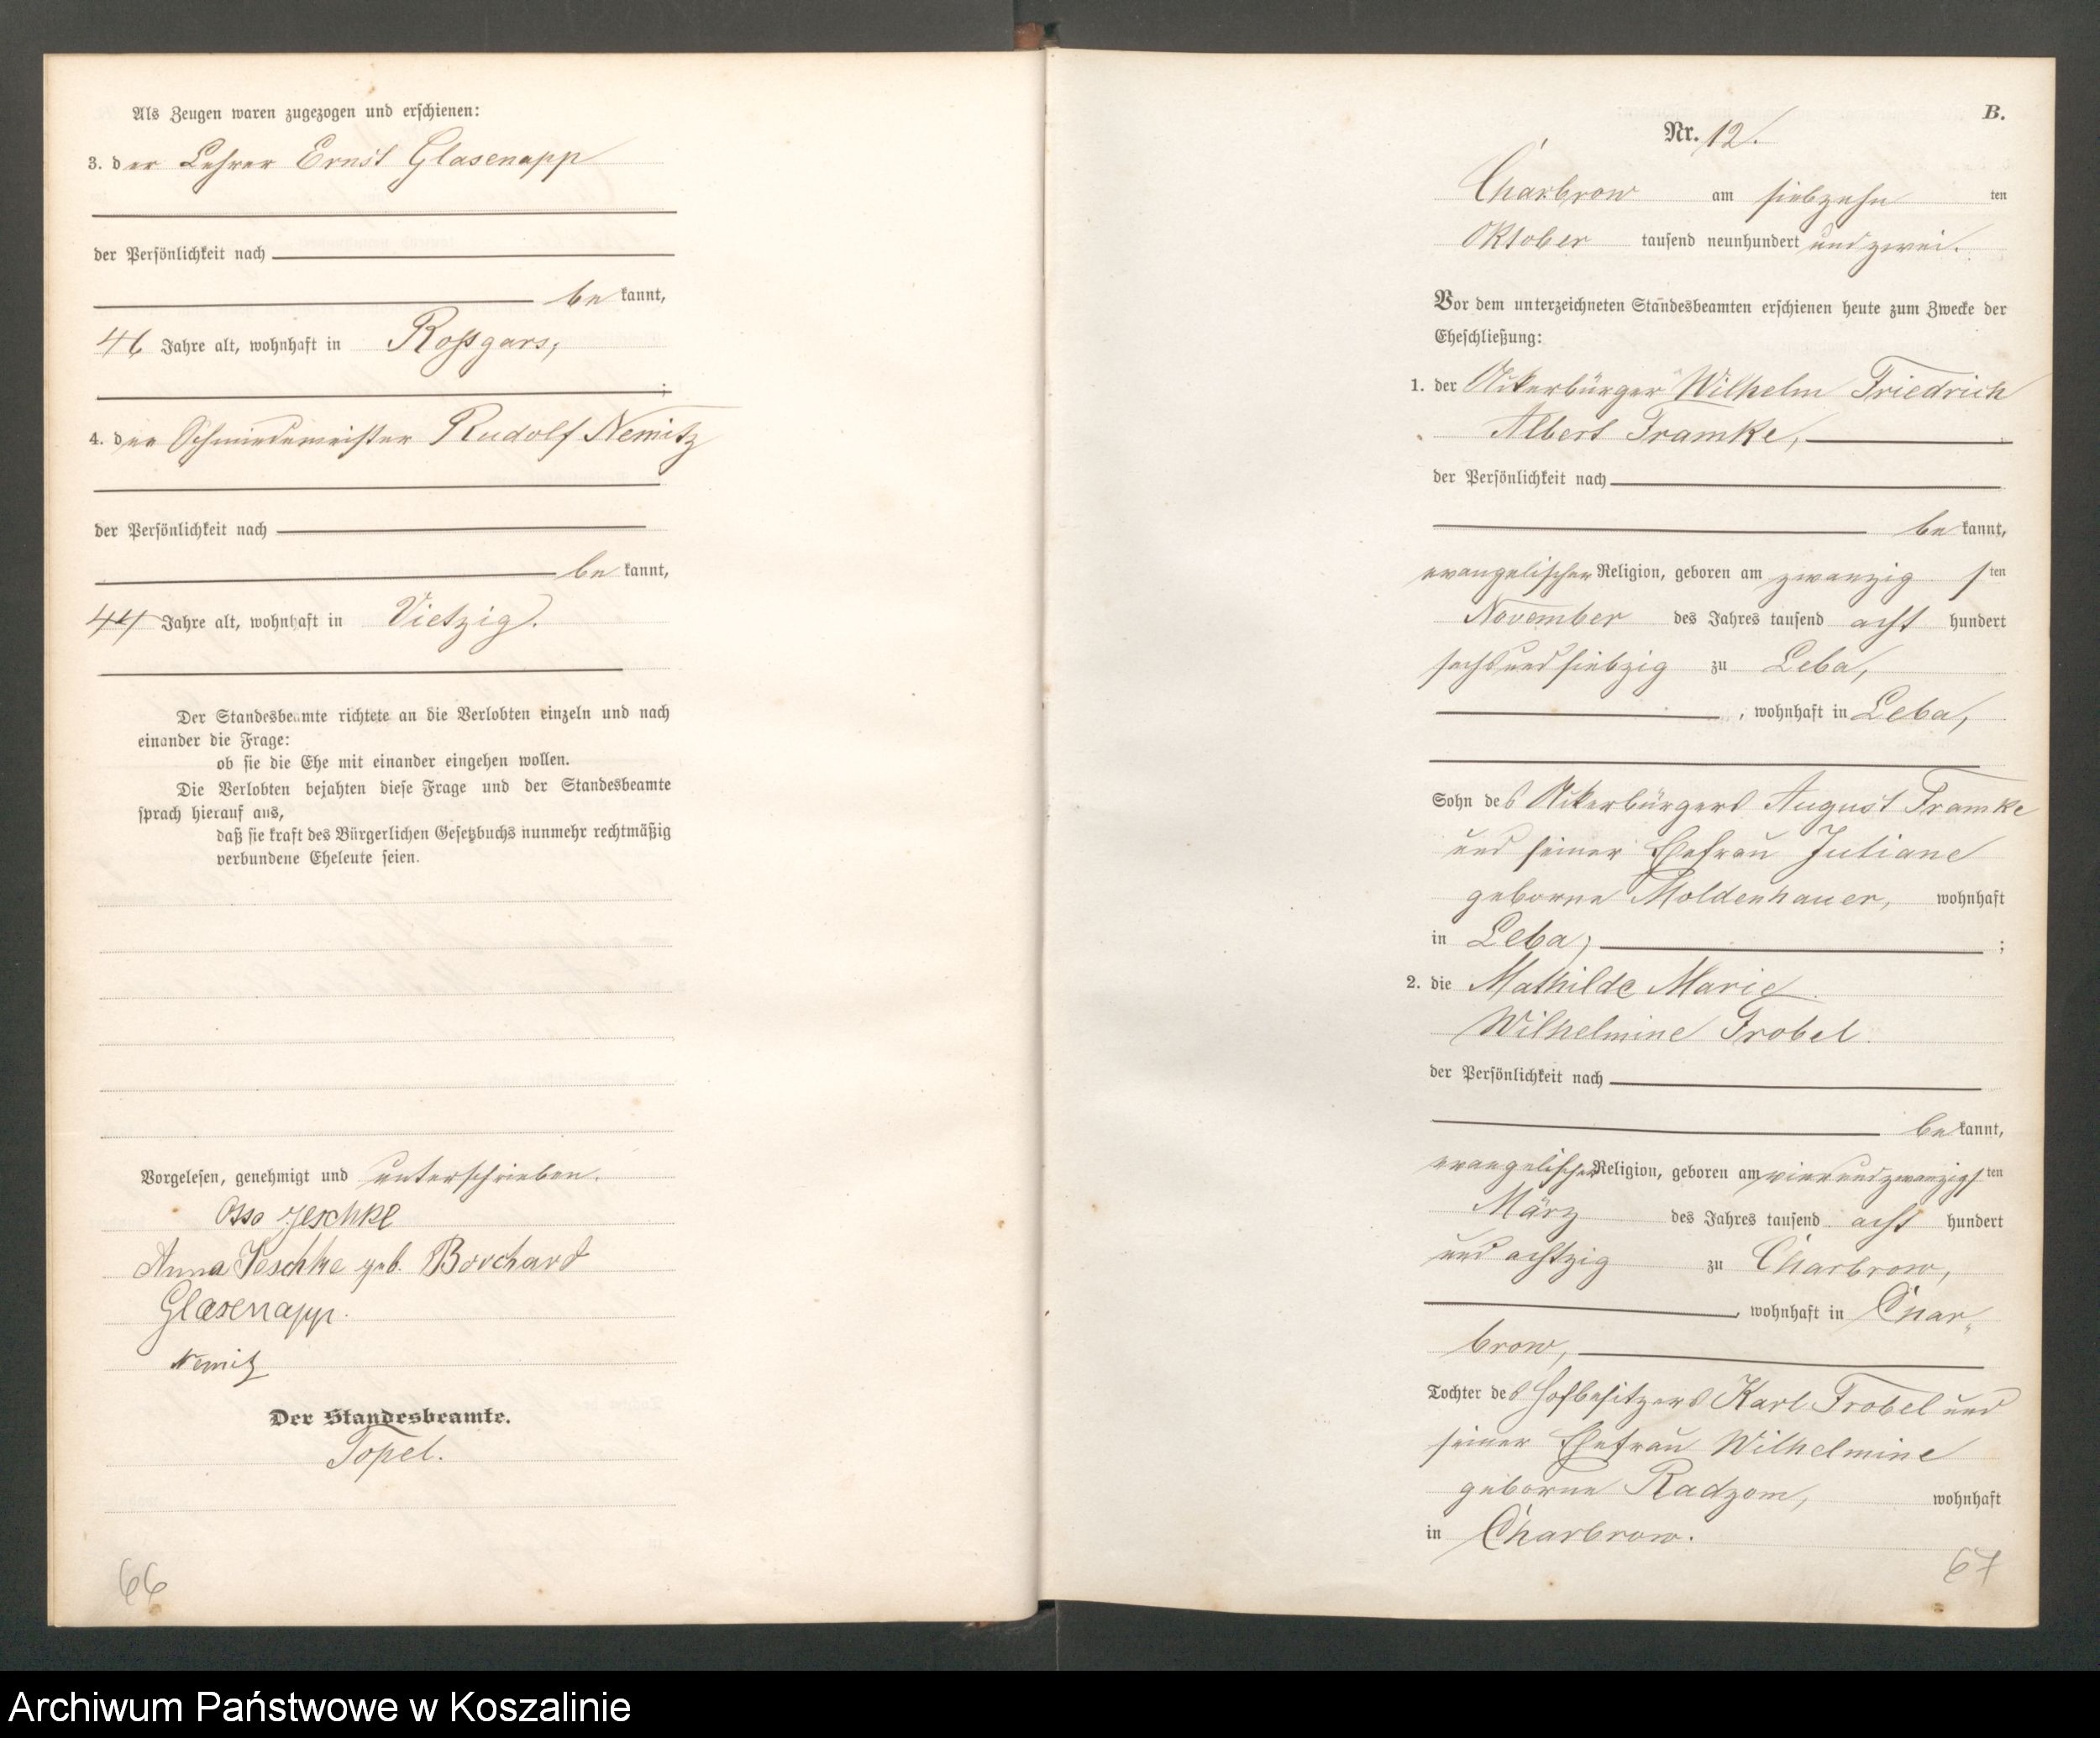 Als Zeugen waren zugezogen und erschienen:
3. der Lehrer Ernst Glasenapp
der Persönlichkeit nach
bekannt,
46 Jahre alt, wohnhaft in Roßgars,
;
4. der Schmiedemeister Rudolf Nemitz
der Persönlichkeit nach
bekannt,
44 Jahre alt, wohnhaft in Vietzig.
Der Standesbeamte richtete an die Verlobten einzeln und nach
einander die Frage:
ob sie die Ehe mit einander eingehen wollen.
Die Verlobten bejahten diese Frage und der Standesbeamte
sprach hierauf aus,
daß sie kraft des Bürgerlichen Gesetzbuchs nunmehr rechtmäßig
verbundene Eheleute seien.
Vorgelesen, genehmigt und unterschrieben.
Otto Jeschke
Anna Jeschke geb. Borchard
Glasenapp.
Nemitz
Der Standesbeamte.
Topel.
66
B.
Nr. 12.
Charbrow am siebzehnten
Oktober tausend neunhundert und zwei.
Vor dem unterzeichneten Standesbeamten erschienen heute zum Zwecke der
Eheschließung:
1. der Ackerbürger Wilhelm Friedrich
Albert Framke,
der Persönlichkeit nach
bekannt,
evangelischer Religion, geboren am zwanzigsten
November des Jahres tausend acht hundert
sechsundsiebzig zu Leba,
, wohnhaft in Leba,
Sohn des Ackerbürgers August Framke
und seiner Ehefrau Juliane
geborne Moldenhauer, wohnhaft
in Leba; ;
2. die Mathilde Marie
Wilhelmine Frobel.
der Persönlichkeit nach
bekannt,
evangelischer Religion, geboren am vierundzwanzigsten
März des Jahres tausend acht hundert
und achtzig zu Charbrow,
, wohnhaft in Char-
brow,
Tochter des Hofbesitzers Karl Frobel und
seiner Ehefrau Wilhelmine
geborne Radzom, wohnhaft
in Charbrow.
67
Archiwum Państwowe w Koszalinie